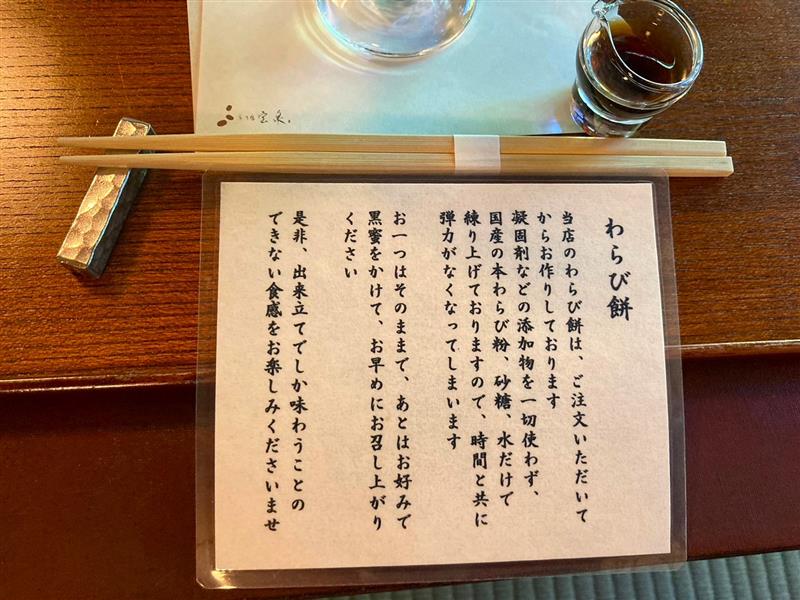 宝泉
わらび餅
当店のわらび餅は、ご注文いただいて
からお作りしております
凝固剤などの添加物を一切使わず、
国産の本わらび粉、砂糖、水だけで
練り上げておりますので、時間と共に
弾力がなくなってしまいます
お一つはそのままで、あとはお好みで
黒蜜をかけて、お早めにお召し上がり
ください
是非、出来立てでしか味わうことの
できない食感をお楽しみくださいませ